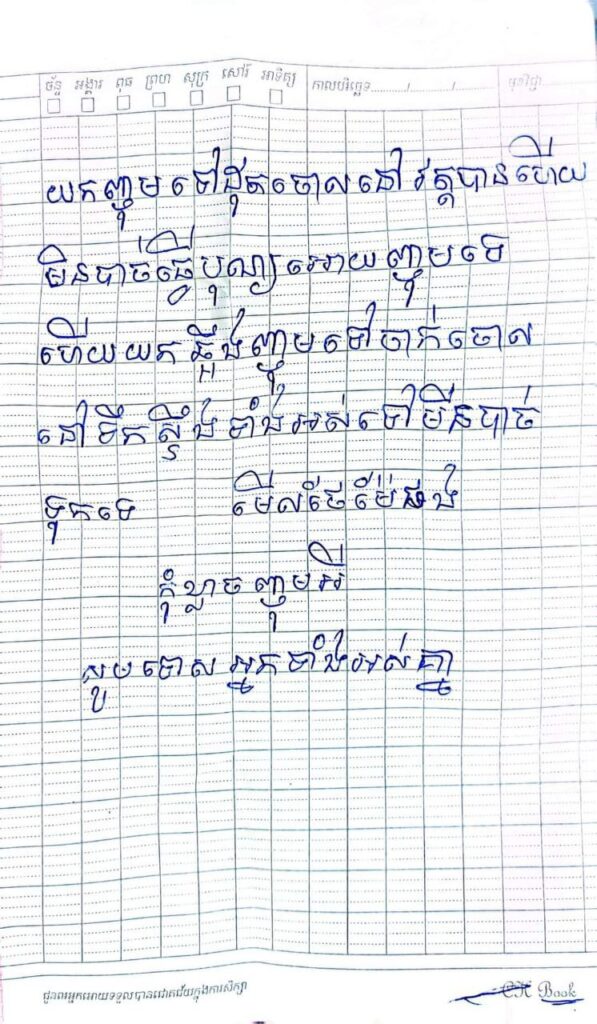 ច័ន្ទ អង្គារ ពុធ ព្រហ សុក្រ សៅរ៍ អាទិត្យ កាលបរិច្ឆេទ........../........../.......... មុខវិជ្ជា
យកញុមទៅដុតចោលនៅវត្តបានហើយ
មិនបាច់ធ្វើបុណ្យអោយញុមទេ
ហើយយកឆ្អឹងញុមទៅចាក់ចោល
នៅទឹកស្ទឹងទាំងអស់ទៅមិនបាច់
ទុកទេ មើលថែម៉ែផង
កុំខ្លាចញុមអី
សូមទោសអ្នកទាំងអស់គ្នា
ជូនពរអ្នកអោយទទួលបានជោគជ័យក្នុងការសិក្សា
CR Book